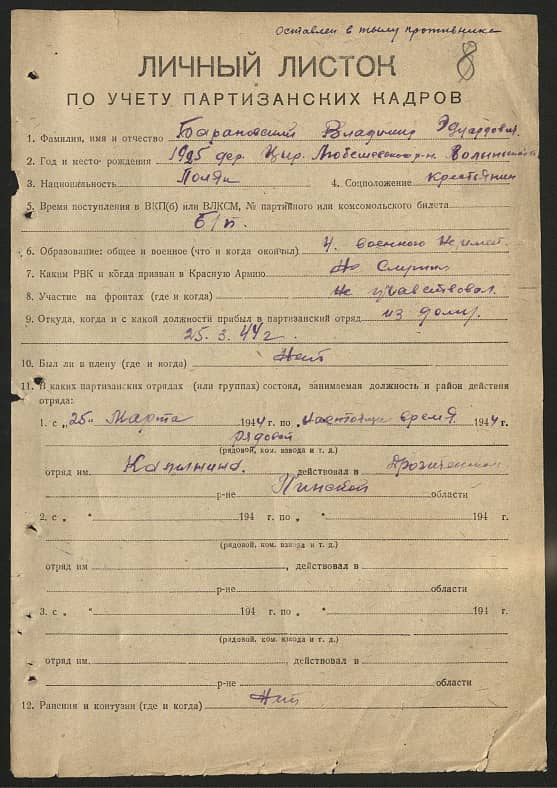 Оставлен в тылу противника
8
ЛИЧНЫЙ ЛИСТОК
ПО УЧЕТУ ПАРТИЗАНСКИХ КАДРОВ
1. Фамилия, имя и отчество Барановский Владимир Эдуардович.
2. Год и место рождения 1925 дер. Цир. Любешевского р-н Волынской
3. Национальность Поляк 4. Соцположение крестьянин
5. Время поступления в ВКП(б) или ВЛКСМ, № партийного или комсомольского билета
б/п.
6. Образование: общее и военное (что и когда окончил) 4. военного не имеет.
7. Каким РВК и когда призван в Красную Армию Не служил
8. Участие на фронтах (где и когда) Не участвовал.
9. Откуда, когда и с какой должности прибыл в партизанский отряд из дому.
25.3.44 г.
10. Был ли в плену (где и когда) Нет
11. В каких партизанских отрядах (или группах) состоял, занимаемая должность и район действия
отряда:
1. с „25„ Марта 1944 г. по настоящее время 1944 г.
рядовой
(рядовой, ком. взвода и т. д.)
отряд им. Калинина. действовал в Дрогиченском
р-не Пинской области
2. с „ “ 194 г. по „ “ 194 г.
(рядовой, ком. взвода и т. д.)
отряд им , действовал в
р-не области
3. с „ “ 194 г. по „ “ 194 г.
(рядовой, ком. взвода и т. д.)
отряд им. , действовал в
р-не области
12. Ранения и контузии (где и когда) Нет